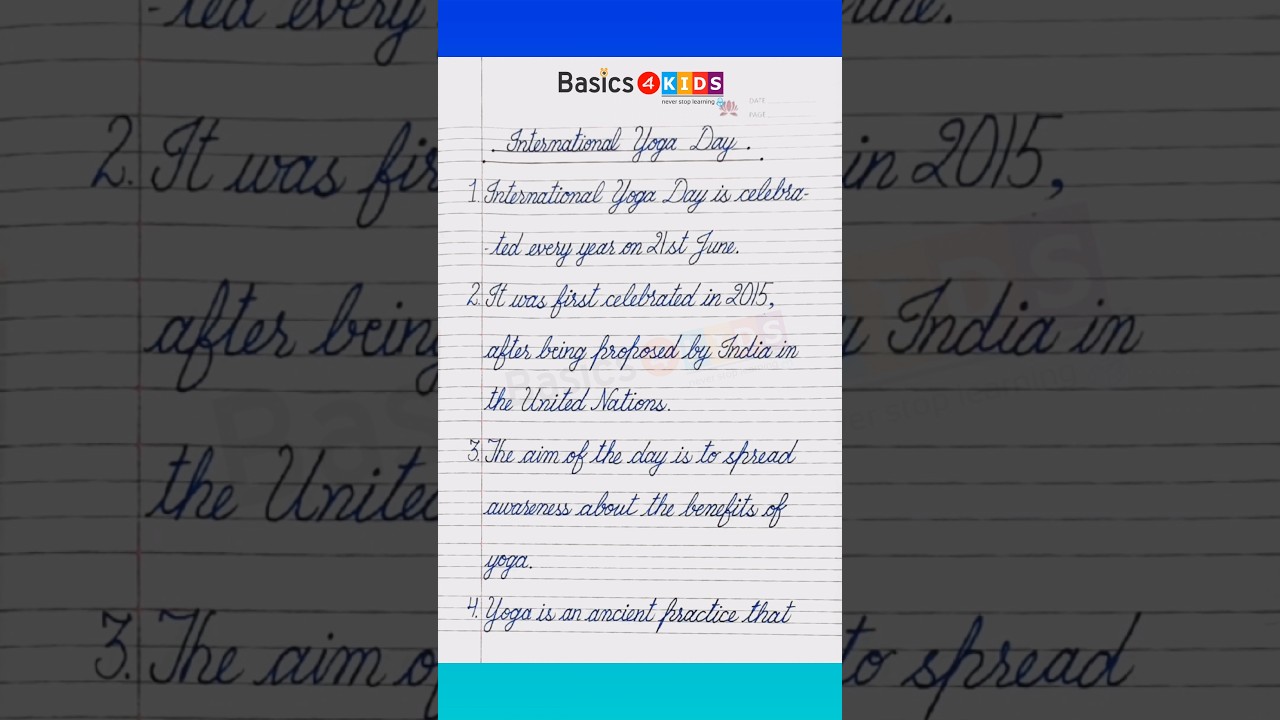 Basics 4 KIDS
never stop learning
DATE
PAGE
. International Yoga Day .
1. International Yoga Day is celebra-
-ted every year on 21st June.
2. It was first celebrated in 2015,
after being proposed by India in
the United Nations.
3. The aim of the day is to spread
awareness about the benefits of
yoga.
4. Yoga is an ancient practice that